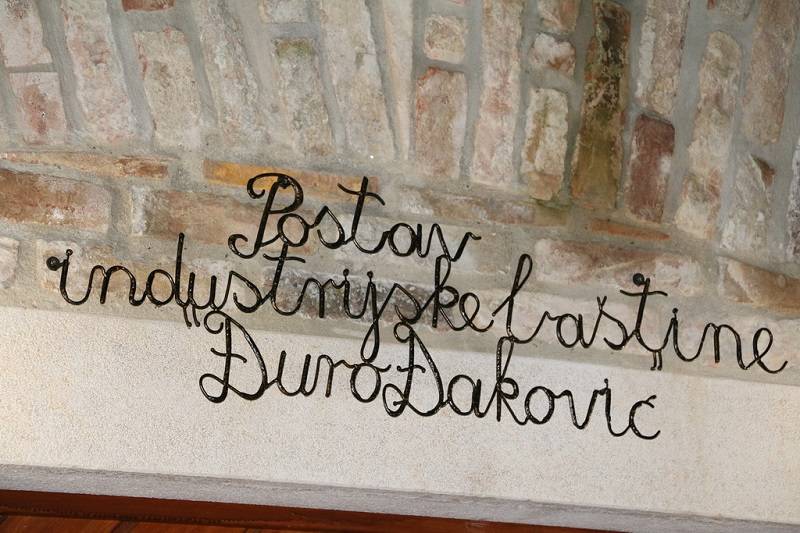 Postav
industrijske baštine
„Đuro Đaković“